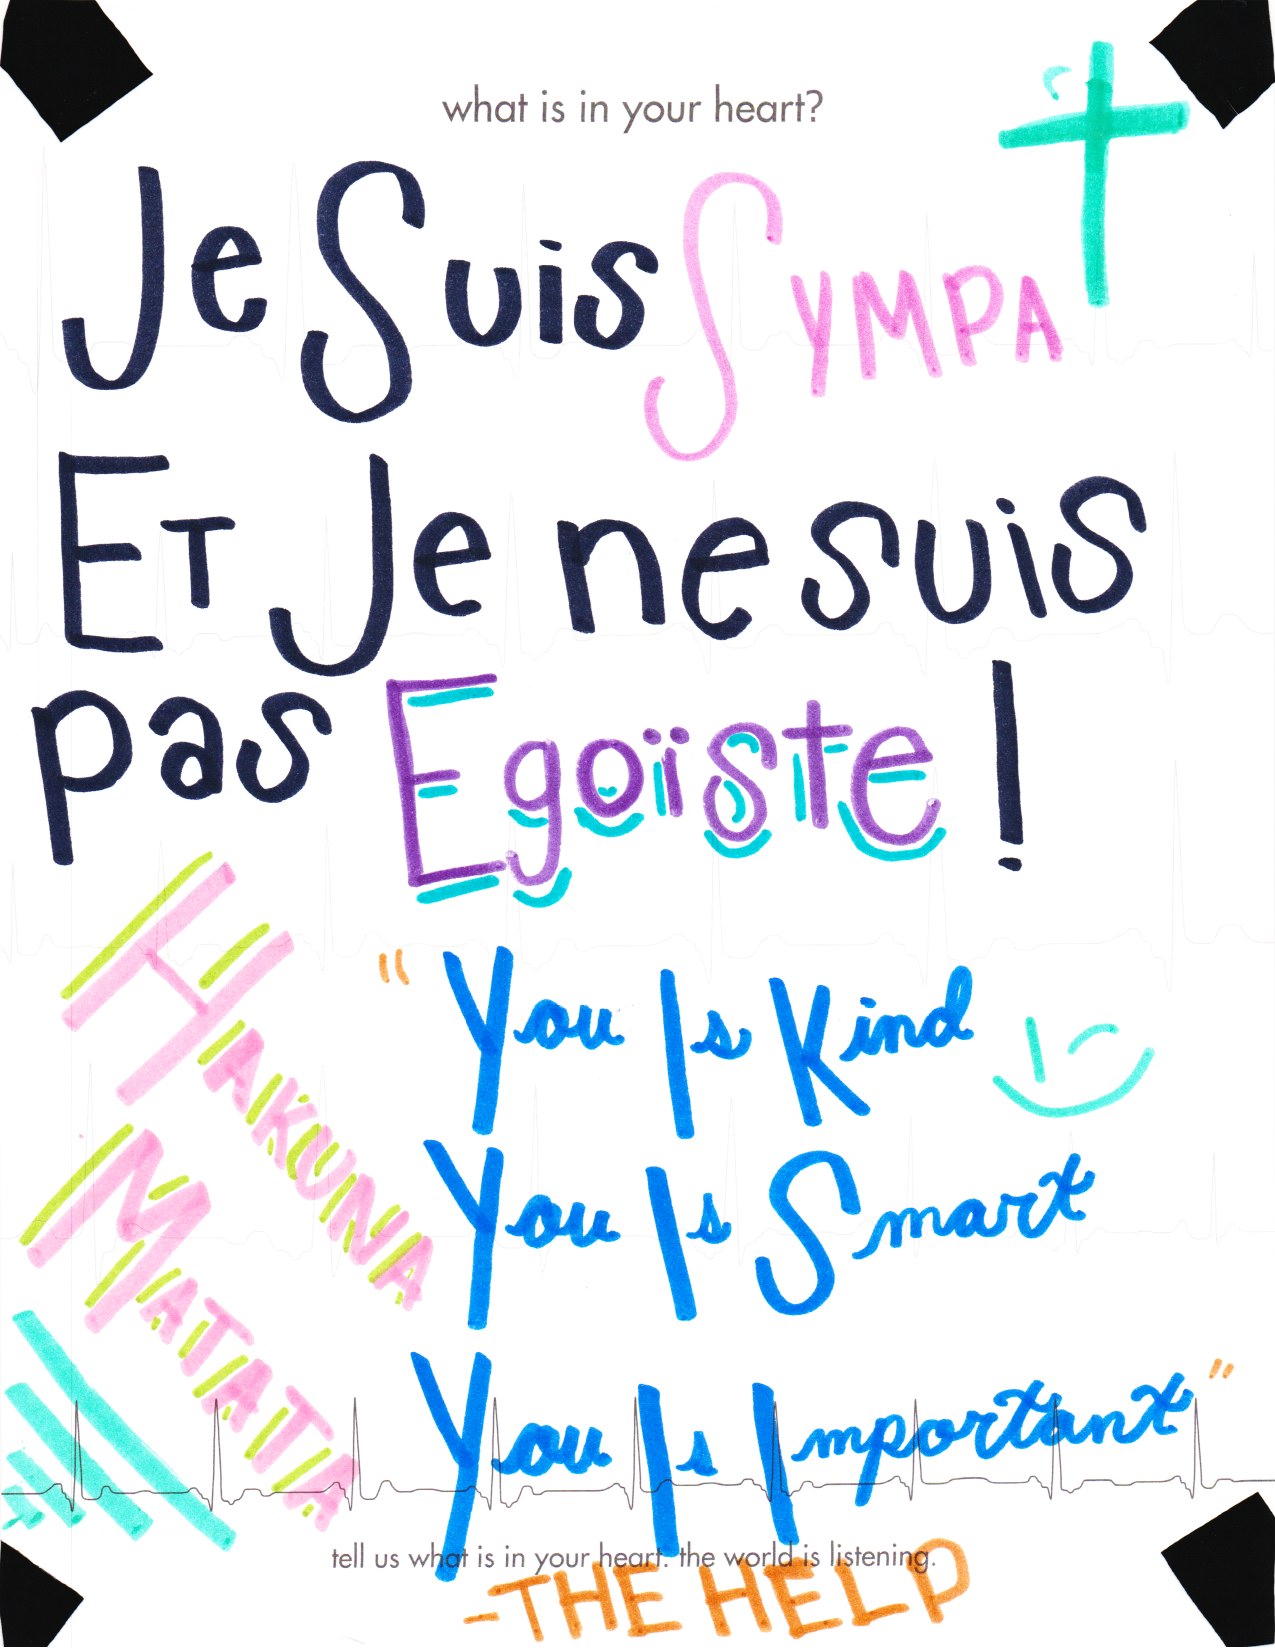 what is in your heart?
Je Suis Sympa
Et Je ne suis
pas Egoïste!
Hakuna
Matata
"You Is Kind
You Is Smart
You Is Important"
tell us what is in your heart. the world is listening.
-THE HELP